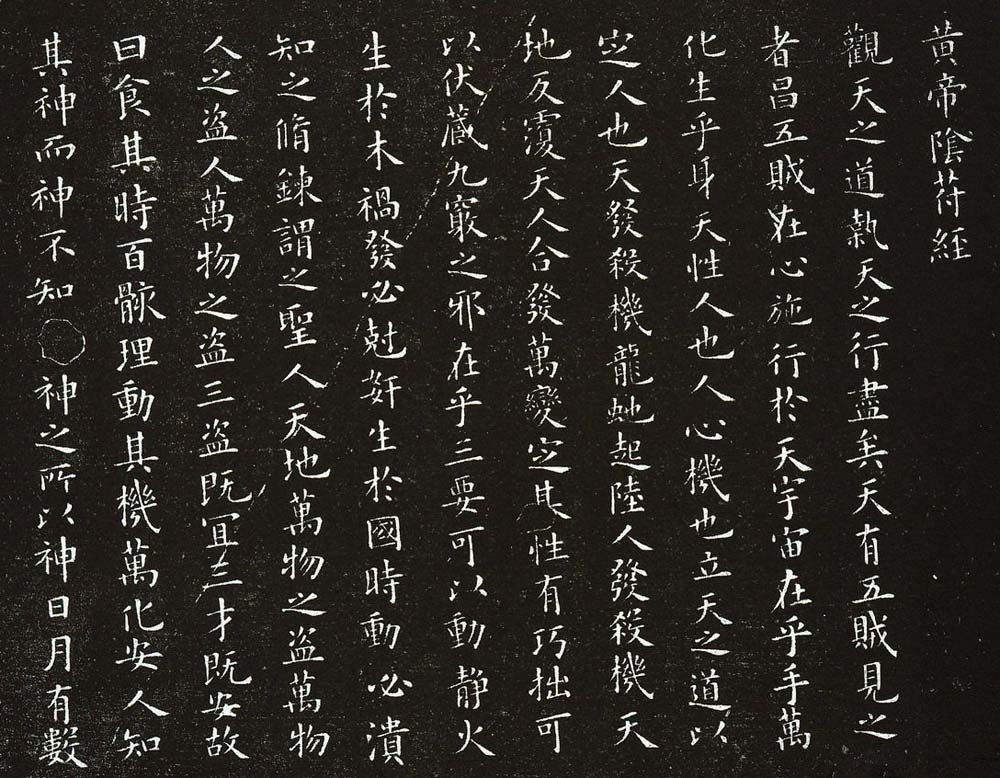 黃帝陰符經
觀天之道執天之行盡矣天有五賊見之
者昌五賊在心施行於天宇宙在乎手萬
化生乎身天性人也人心機也立天之道以
定人也天發殺機龍虵起陸人發殺機天
地反覆天人合發萬變定其性有巧拙可
以伏藏九竅之邪在乎三要可以動靜火
生於木禍發必尅姧生於國時動必潰
知之脩鍊謂之聖人天地萬物之盜萬物
人之盜人萬物之盜三盜既宜三才既安故
曰食其時百骸理動其機萬化安人知
其神而神不知神之所以神日月有數